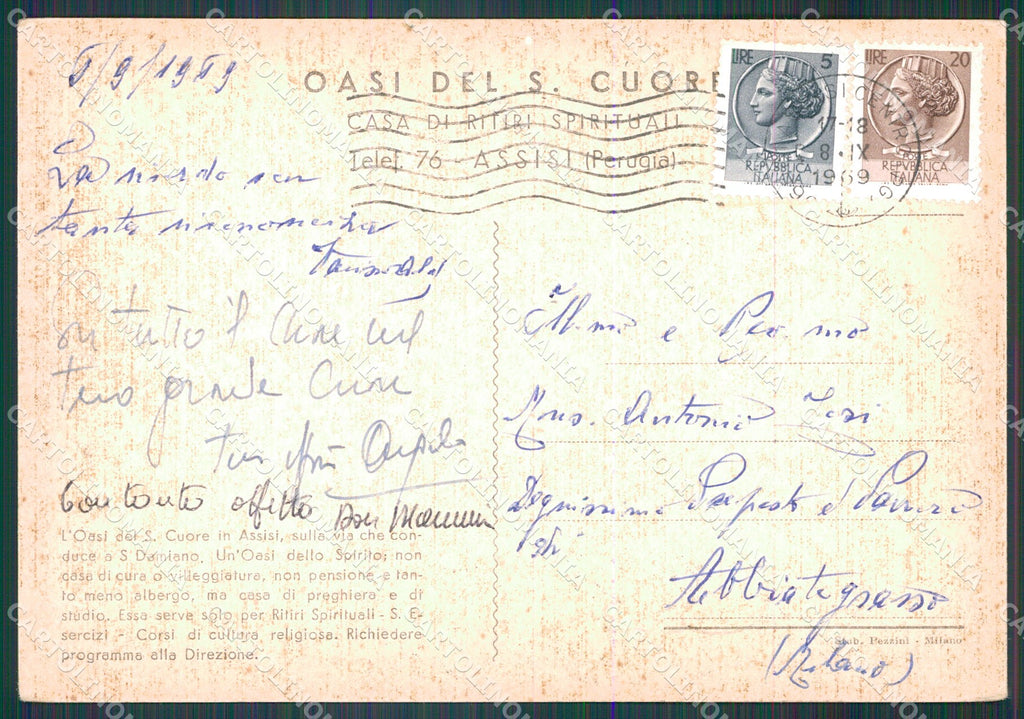 5/9/1969
OASI DEL S. CUORE
CASA DI RITIRI SPIRITUALI
Telef. 76 - ASSISI (Perugia)
LIRE 5
POSTE
REPVBBLICA
ITALIANA
LIRE 20
POSTE
REPVBBLICA
ITALIANA
17-18
8 · IX
1969
La ricordo con
tanta riconoscenza
tutto il Cuore nel
tuo grande Cuore
Con tanto affetto Don
L'Oasi del S. Cuore in Assisi, sulla via che con-
duce a S Damiano. Un'Oasi dello Spirito; non
casa di cura o villeggiatura, non pensione e tan-
to meno albergo, ma casa di preghiera e di
studio. Essa serve solo per Ritiri Spirituali - S. E-
sercizi - Corsi di cultura religiosa. Richiedere
programma alla Direzione.
Ill.mo e Rev.mo
Mons. Antonio
Degnissimo Preposto e
di
Abbiategrasso
(Milano)
Stab. Pezzini - Milano
CARTOLINOMANIA